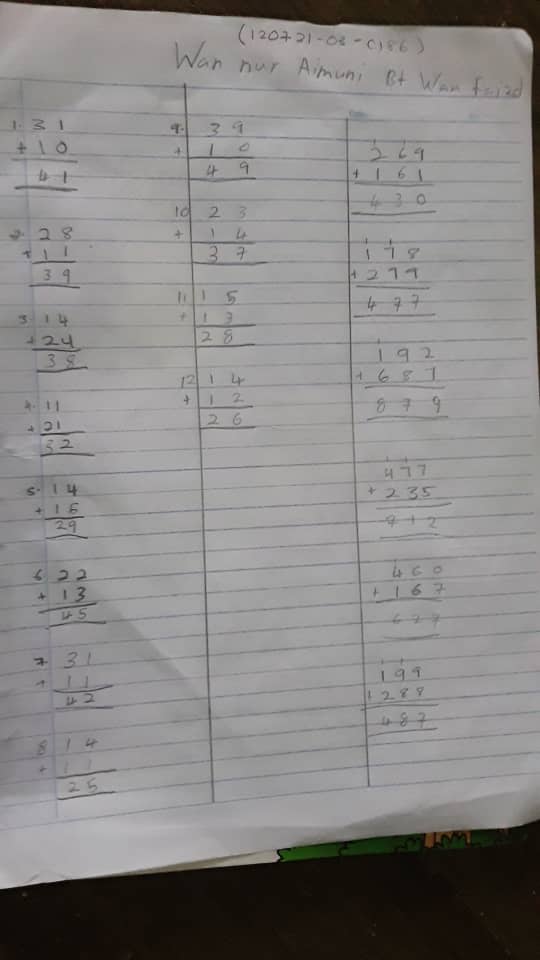 (120721-03-0186)
Wan nur Aimuni Bt Wan Faizd
1. 31
+ 10
41
2. 28
+ 11
39
3. 14
+ 24
38
4. 11
+ 21
32
5. 14
+ 15
29
6 22
+ 13
45
7 31
+ 11
42
8 14
+ 11
25
9. 39
+ 10
49
10 23
+ 14
37
11 15
+ 13
28
12 14
+ 12
26
1 1
269
+ 161
430
1 1
178
+ 299
477
1
192
+ 687
879
1 1
477
+ 235
712
1
460
+ 167
627
1 1
199
+ 288
487